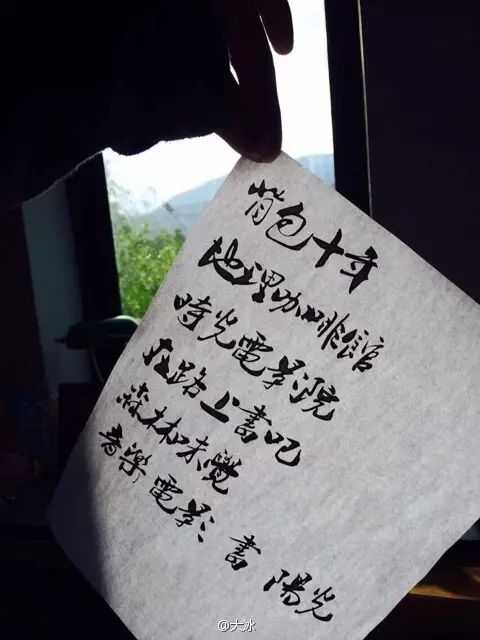 背包十年
地理咖啡館
時光電影院
在路上書吧
森林味覺
音樂 電影 書 陽光
@大冰